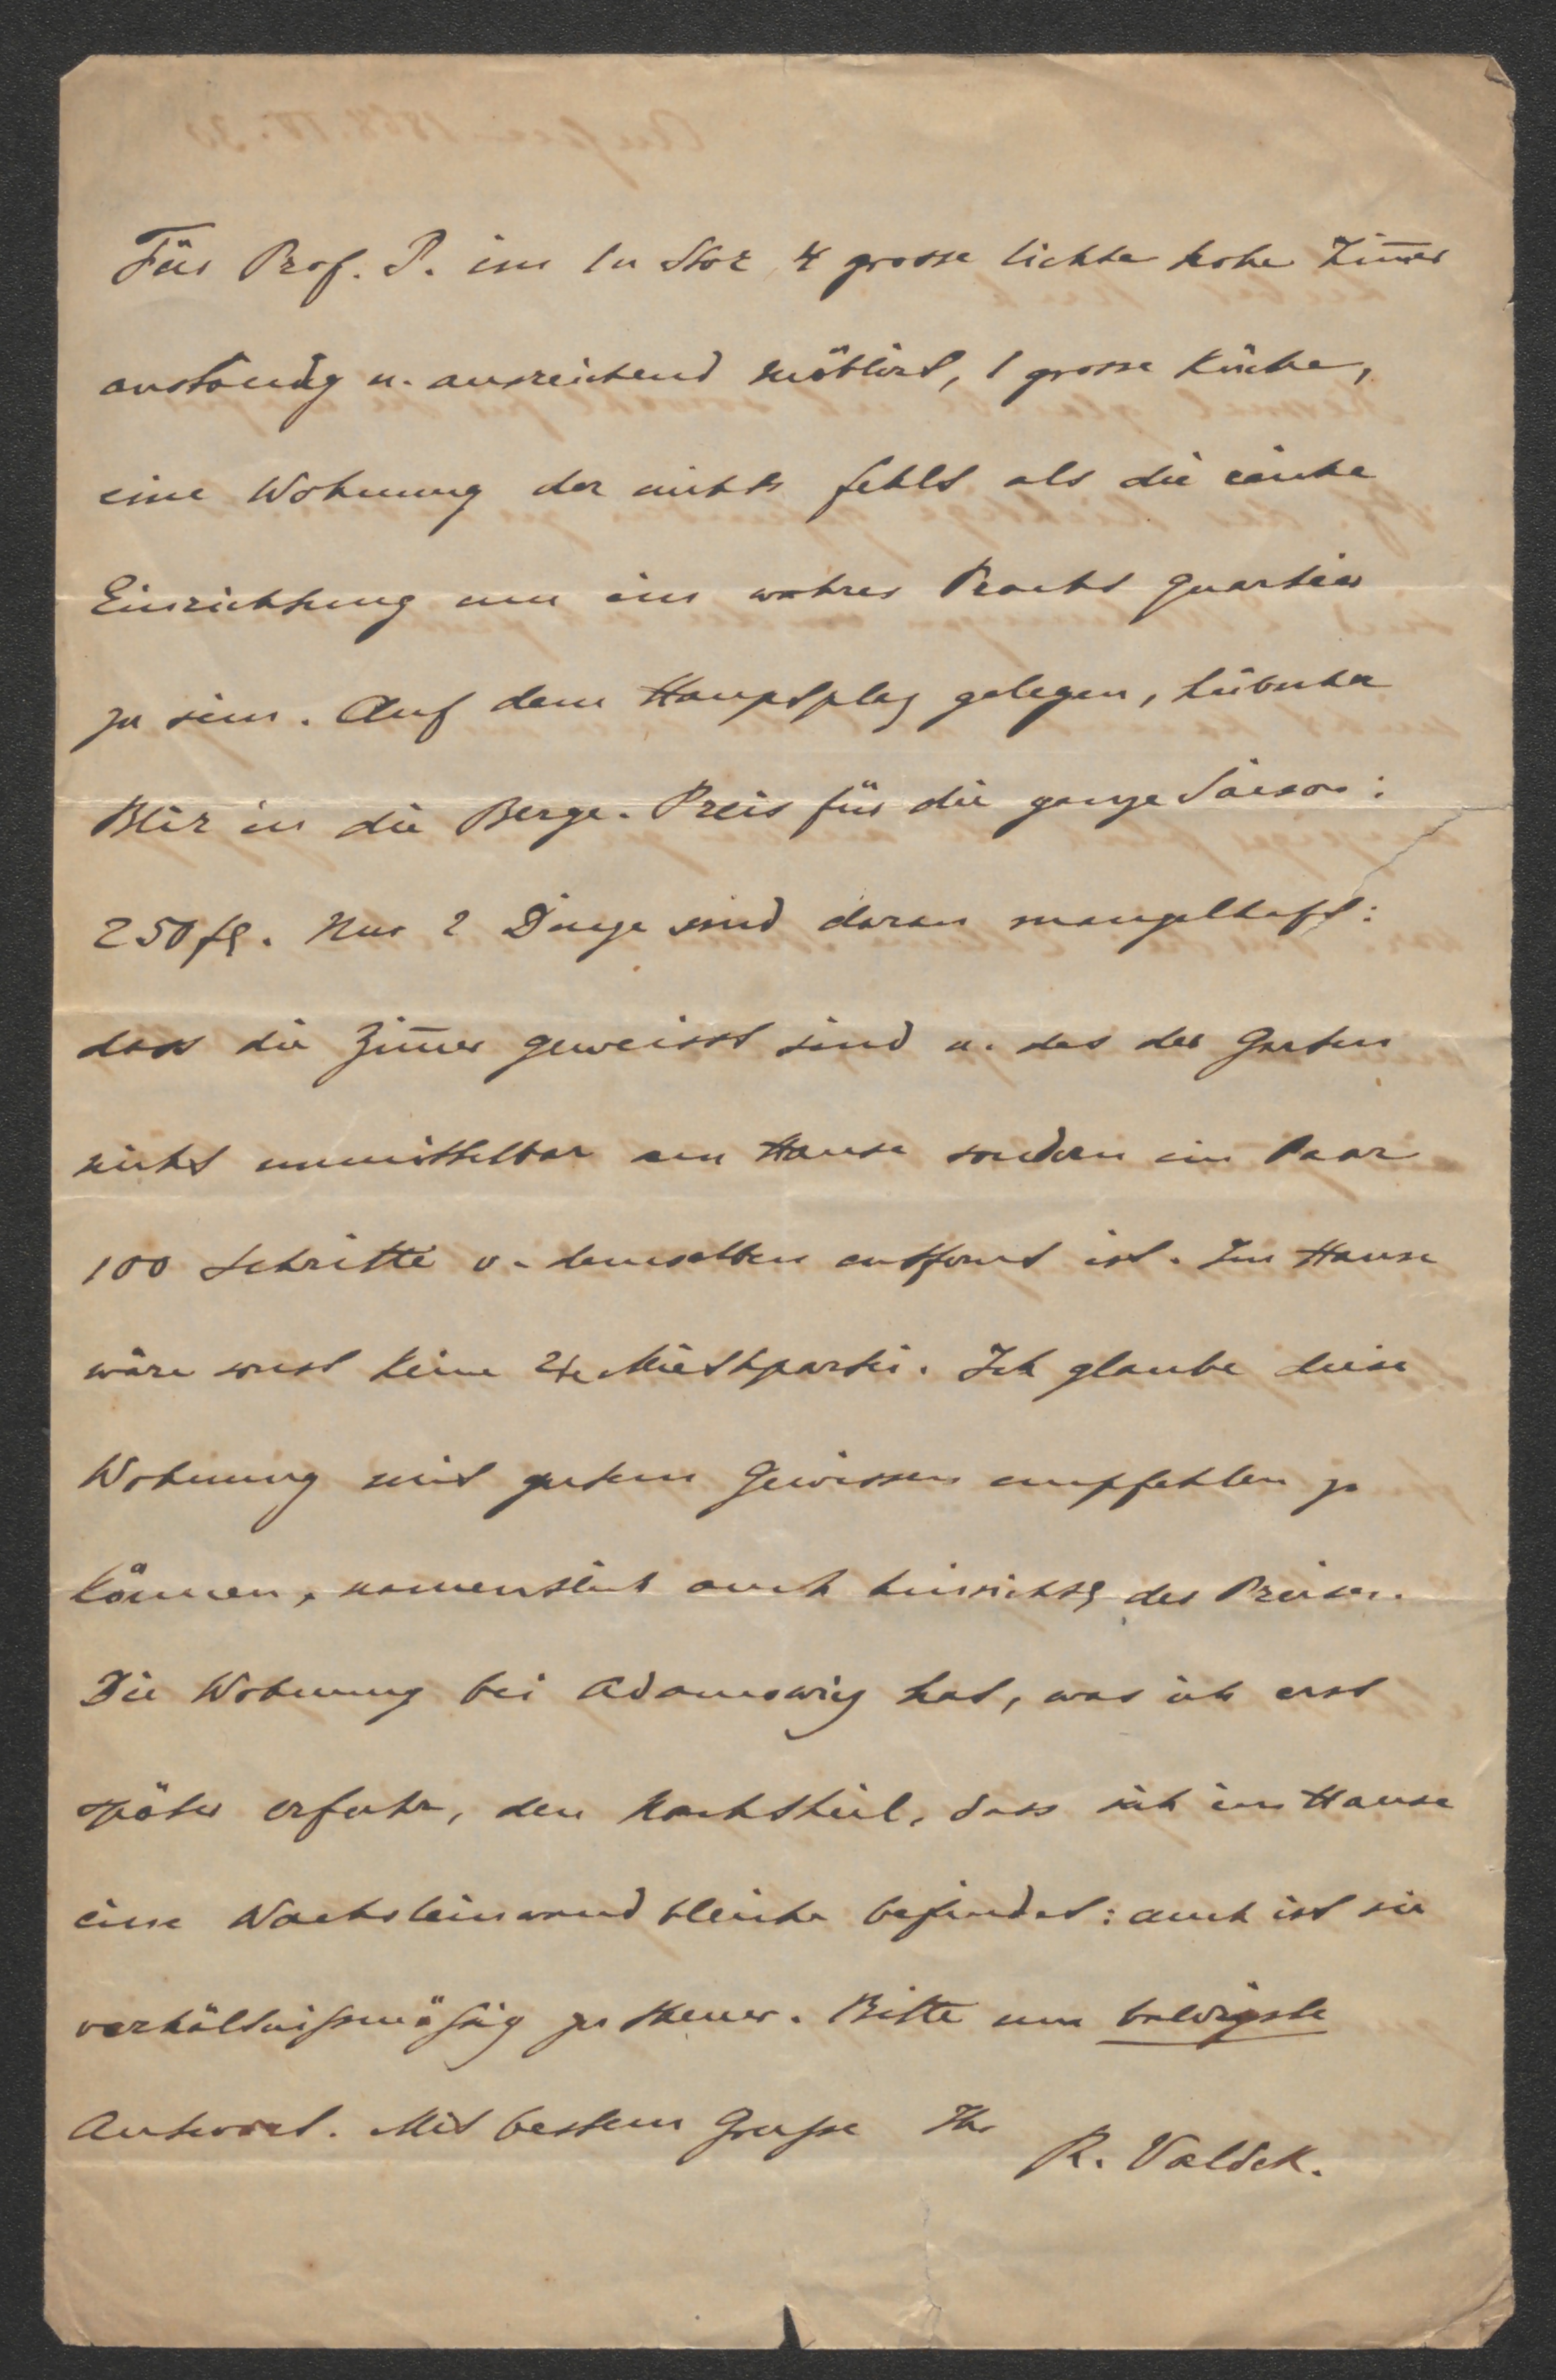 Für Prof. P. im 1n Stok 4 grosse lichte hohe Zim̅er
anständig u. ausreichend möblirt, 1 grosse Küche,
eine Wohnung der nichts fehlt als die reiche
Einrichtung um ein wahres Pracht Quartier
zu sein. Auf dem Hauptplaz gelegen, hübscher
Blik in die Berge. Preis für die ganze Saison:
250 fl. Nur 2 Dinge sind daran mangelhaft:
dass die Zim̅er geweisst sind u. das der Garten
nicht unmittelbar am Hause sondern ein Paar
100 Schritte v. demselben entfernt ist. Im Hause
wäre sonst keine 2te Miethpartei. Ich glaube diese
Wohnung mit gutem Gewissen empfehlen zu
können, namentlich auch hinsichtl des Preises.
Die Wohnung bei Adamowiz hat, was ich erst
später erfuhr, den Nachtheil, dass sich im Hause
eine Wachsleinwand bleiche befindet: auch ist sie
verhältnißmäßig zu theuer. Bitte um baldigste
Antwort. Mit bestem Gruße Ihr
R. Valdek.